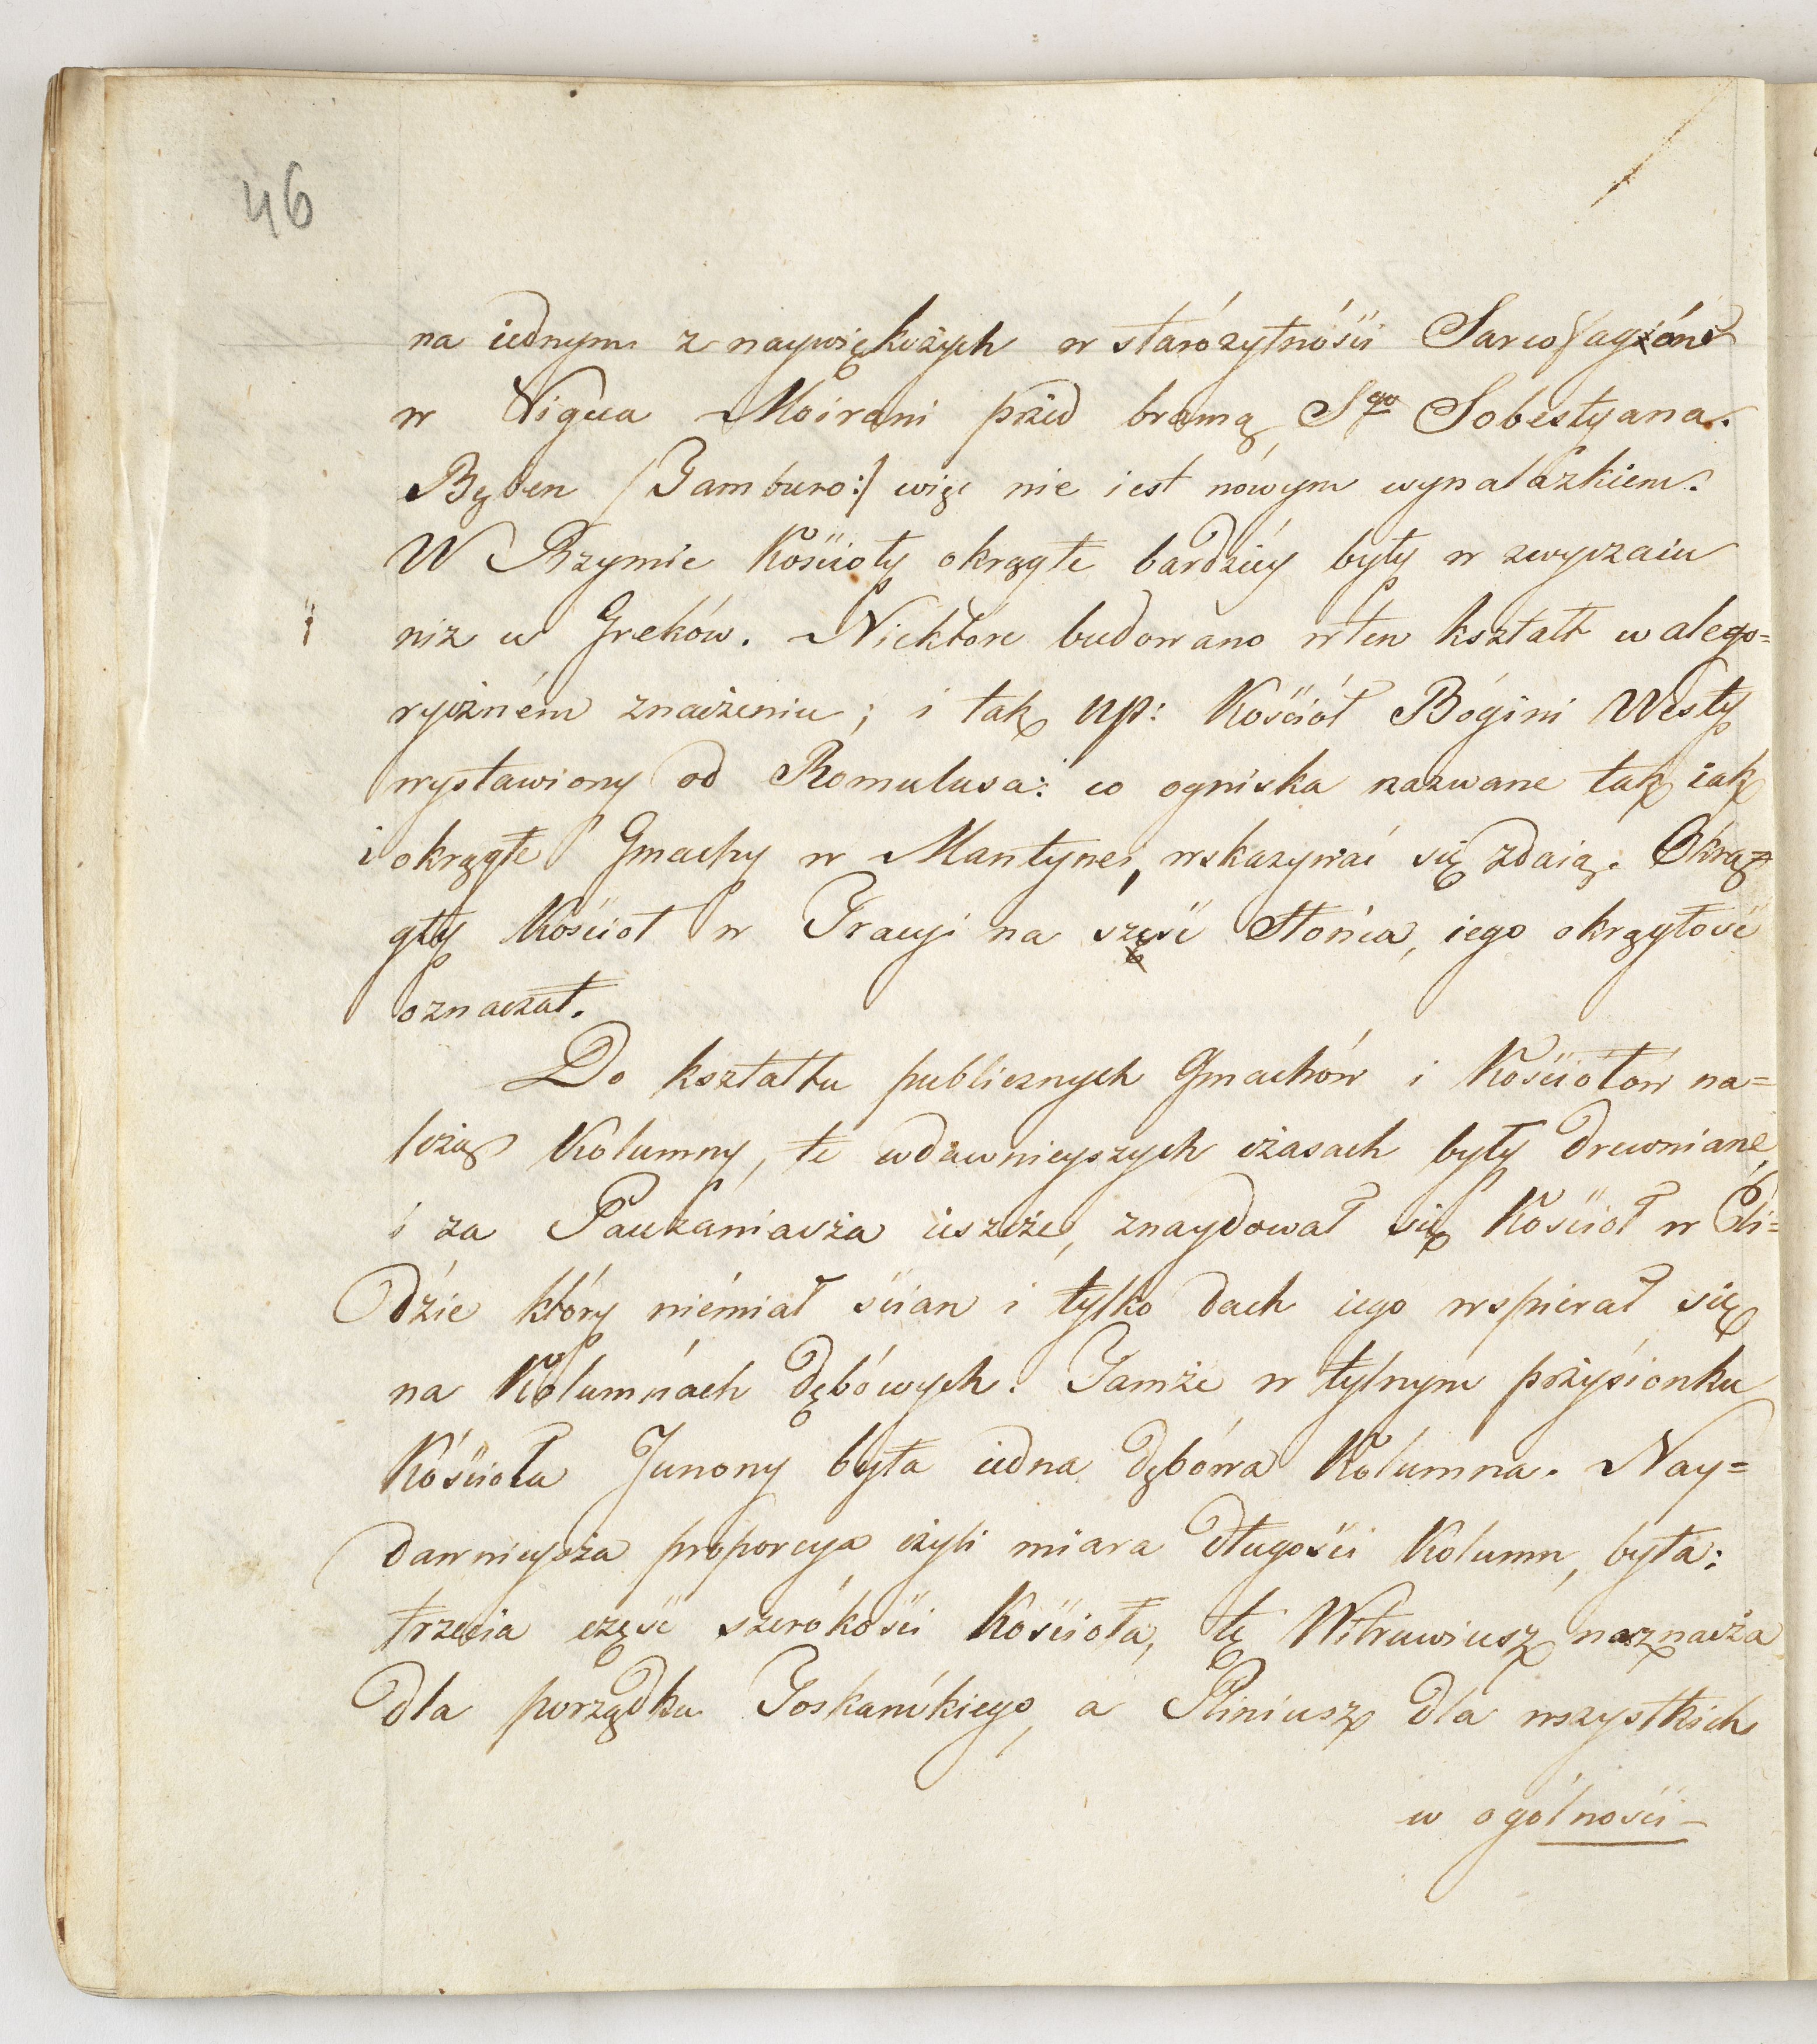 46
na iednym z naywiękrzych w starożytnośći Sarcofagów
w Vigua Moirani przed bramą Sgo Sobestyana.
Bęben /Tamburo:/ więc nie iest nowym wynalazkiem.
W Rzymie Kościoły okrągłe bardziéy były w zwyczaiu
niz u Greków. Niektóre budowano w ten kształt w alego=
ryczném znaczeniu; i tak np: Kościół Bogini Westy
wystawiony od Romulusa: co ogniska nazwane tak iak
i okrągłe Gmachy w Mantynei, wskazywać się zdaią. Okrą=
gły Kościoł w Tracyi na cześć Słońca, iego okrągłość
oznaczał.
Do kształtu publicznych Gmachów i Kościołów na=
leżą Kolumny, te w dawnieyszych czasach były drewniane,
i za Pauzaniasza ieszcze, znaydował się Kościoł w Eli=
dzie który niemiał ścian i tylko dach iego wspierał się
na Kolumnach dębowych. Tamże w tylnym przysionku
Kościoła Junony była iedna dębowa Kolumna. Nay=
dawnieysza proporcya czyli miara długości Kolumn, była:
trzecia część szerokości Kościoła, tę Witruwiusz naznacza
dla porządku Toskańskiego, a Pliniusz dla wszystkich
w ogólności –